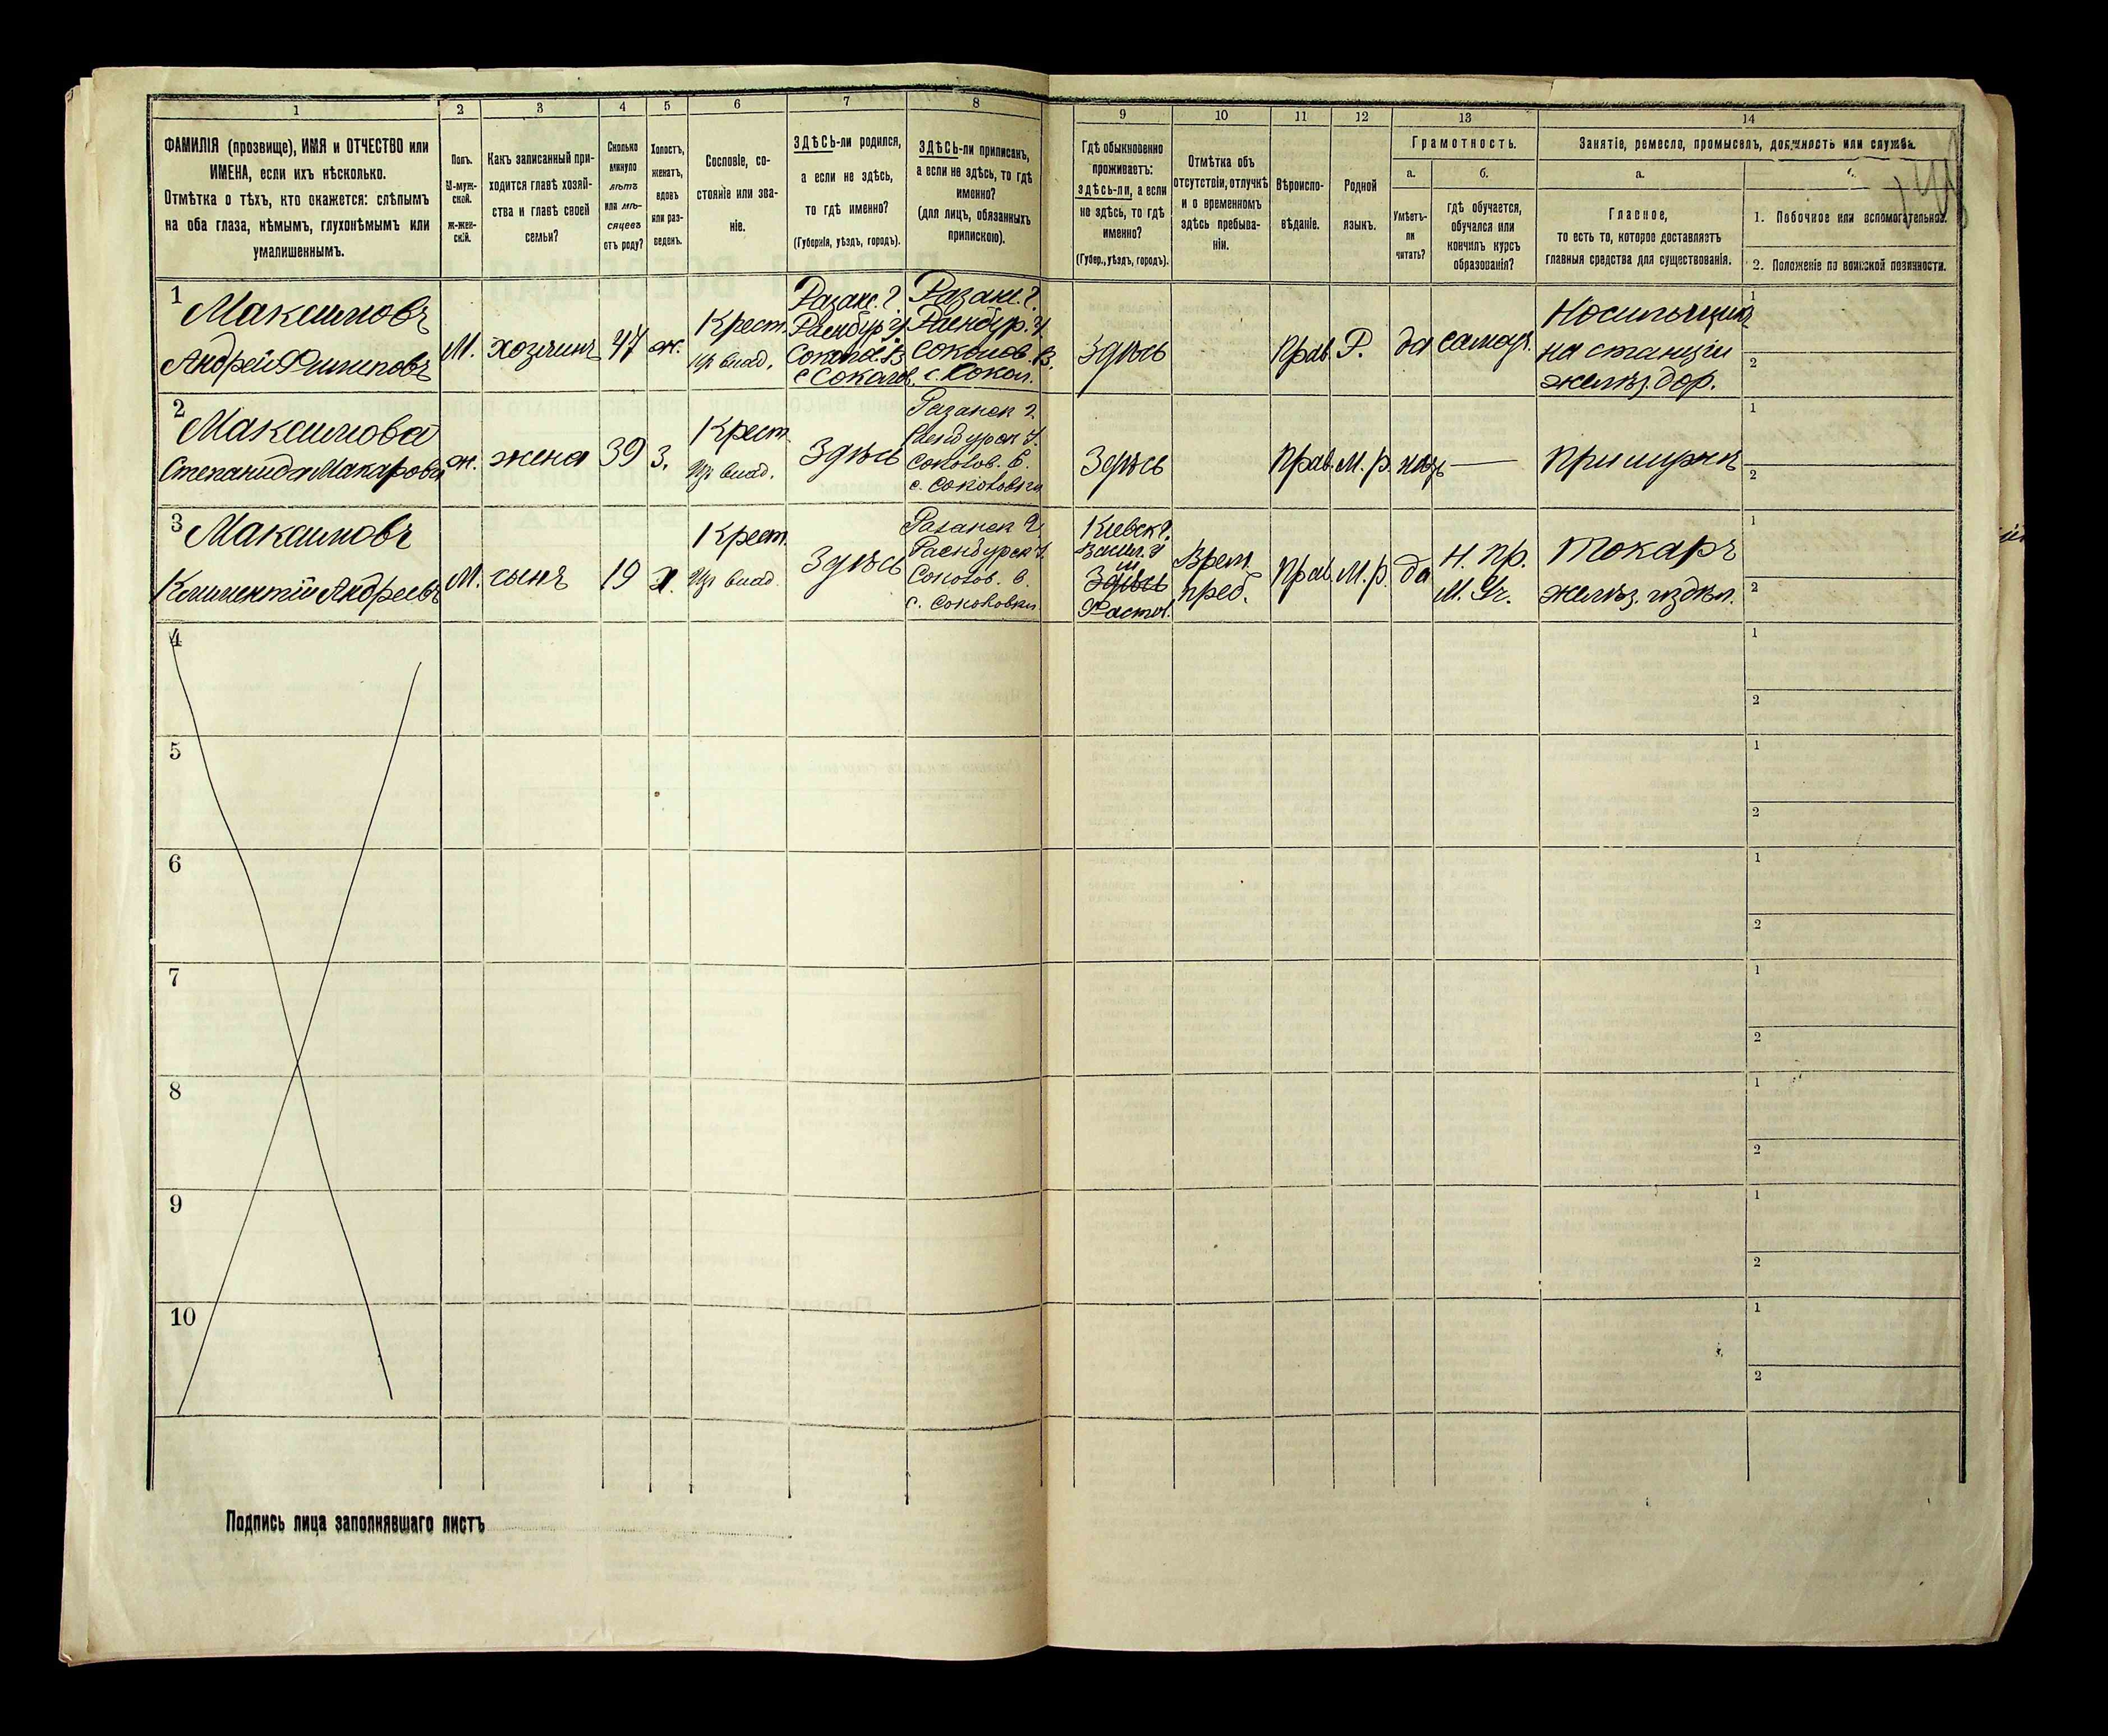 1
2
3
4
5
6
7
8
9
10
11
12
13
14
ФАМИЛІЯ (прозвище), ИМЯ и ОТЧЕСТВО или
ИМЕНА, если ихъ нѣсколько.
Отмѣтка о тѣхъ, кто окажется: слѣпымъ
на оба глаза, нѣмымъ, глухонѣмымъ или
умалишеннымъ.
Полъ.
М-муж-
ской.
Ж-жен-
скій.
Какъ записанный при-
ходится главѣ хозяй-
ства и главѣ своей
семьи?
Сколько
минуло
лѣтъ
или мѣ-
сяцевъ
отъ роду?
Холостъ,
женатъ,
вдовъ
или раз-
веденъ.
Сословіе, со-
стояніе или зва-
ніе.
ЗДѢСЬ-ли родился,
а если не здѣсь,
то гдѣ именно?
(Губернія, уѣздъ, городъ).
ЗДѢСЬ-ли приписанъ,
а если не здѣсь, то гдѣ
именно?
(для лицъ, обязанныхъ
припискою).
Гдѣ обыкновенно
проживаетъ:
здѣсь-ли, а если
не здѣсь, то гдѣ
именно?
(Губер., уѣздъ, городъ).
Отмѣтка объ
отсутствіи, отлучкѣ
и о временномъ
здѣсь пребыва-
ніи.
Вѣроиспо-
вѣданіе.
Родной
языкъ.
Грамотность.
а.
б.
Умѣетъ-
ли
читать?
гдѣ обучается,
обучался или
кончилъ курсъ
образованія?
Занятіе, ремесло, промыселъ, должность или служба.
а.
Главное,
то есть то, которое доставляетъ
главныя средства для существованія.
1. Побочное или вспомогательное.
2. Положеніе по воинской повинности.
1
Максимовъ
Андрей Филиповъ
М.
хозяинъ
47
ж.
Крест.
Из влад.
Разанс. г.
Раенбур. у.
Соколов. В.
с. Соколов.
Разанс. г.
Раенбур. у.
Соколов. В.
с. Сокол.
Здѣсь
Прав.
Р.
да
самоу.
Носильщикъ
на станціи
желѣз. дор.
1
2
2
Максимова
Степанида Макарова
ж.
жена
39
З.
Крест.
Из влад.
Здѣсь
Разанск г.
Раенбурск у.
Соколов. в.
с. Соколовки
Здѣсь
Прав.
М. р.
нѣтъ
—
При мужѣ
1
2
3
Максимовъ
Климентій Андреевъ
М.
сынъ
19
х.
Крест.
Из влад.
Здѣсь
Разанск г.
Раенбурск у.
Соколов. в.
с. Соколовки
Кіевск. г.
Васил. у
м.
Здѣсь
Фастов.
Врем.
преб.
Прав.
М. р.
да
Н. пр.
М. Уч.
Токарь
желѣз. издѣл.
1
2
4
1
2
5
1
2
6
1
2
7
1
2
8
1
2
9
1
2
10
1
2
Подпись лица заполнявшаго листъ